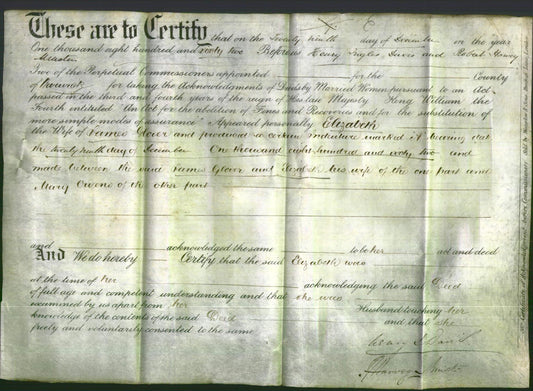 These are to Certify that on the Twenty ninth day of December in the year
One thousand eight hundred and sixty two Before us Henry Davies and Robert Harvey
Two of the Perpetual Commissioners appointed for the County
of for taking the Acknowledgments of Deeds by Married Women pursuant to an Act
passed in the third and fourth years of the reign of His late Majesty King William the
Fourth intituled "An Act for the abolition of Fines and Recoveries and for the substitution of
more simple modes of assurance" Appeared personally Elizabeth
the Wife of James Glover and produced a certain Indenture marked A bearing date
the twenty ninth day of December One thousand eight hundred and sixty two and
made between the said James Glover and Elizabeth his wife of the one part and
Mary Owens of the other part
and acknowledged the same to be her act and deed
And We do hereby Certify that the said Elizabeth was
at the time of her acknowledging the said Deed
of full age and competent understanding and that she was
examined by us apart from her Husband touching her
knowledge of the contents of the said Deed and that she
freely and voluntarily consented to the same.